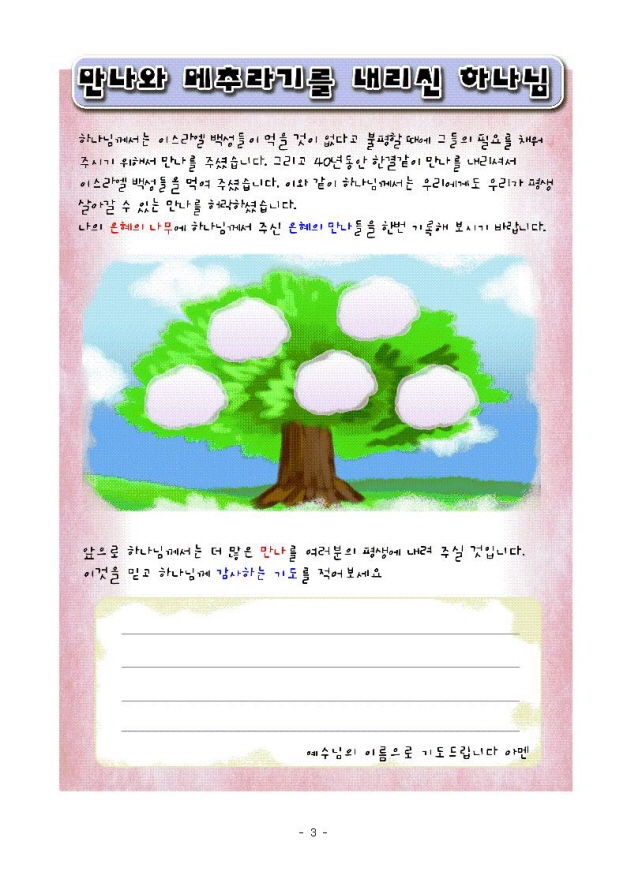 만나와 메추라기를 내리신 하나님
하나님께서는 이스라엘 백성들이 먹을 것이 없다고 불평할 때에 그들의 필요를 채워
주시기 위해서 만나를 주셨습니다. 그리고 40년동안 한결같이 만나를 내리셔서
이스라엘 백성들을 먹여 주셨습니다. 이와 같이 하나님께서는 우리에게도 우리가 평생
살아갈 수 있는 만나를 허락하셨습니다.
나의 은혜의 나무에 하나님께서 주신 은혜의 만나들을 한번 기록해 보시기 바랍니다.
앞으로 하나님께서는 더 많은 만나를 여러분의 평생에 내려 주실 것입니다.
이것을 믿고 하나님께 감사하는 기도를 적어보세요
예수님의 이름으로 기도드립니다 아멘
- 3 -